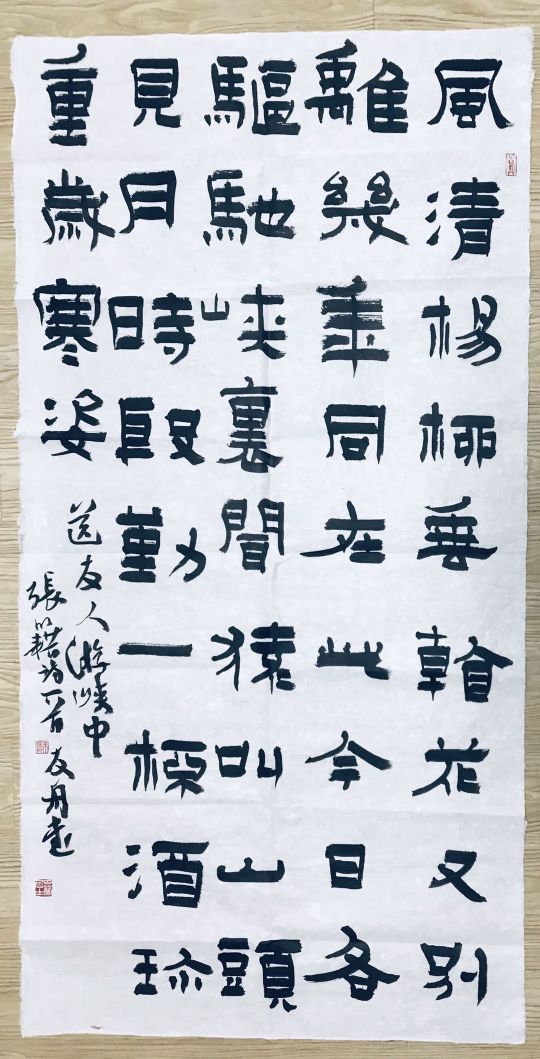 風清楊柳垂看花又别
離幾年同在此今日各
驅馳峽裏聞猿叫山頭
見月時殷勤一桮酒珍
重歲寒姿
送友人游峽中
張籍詩一首友舟書